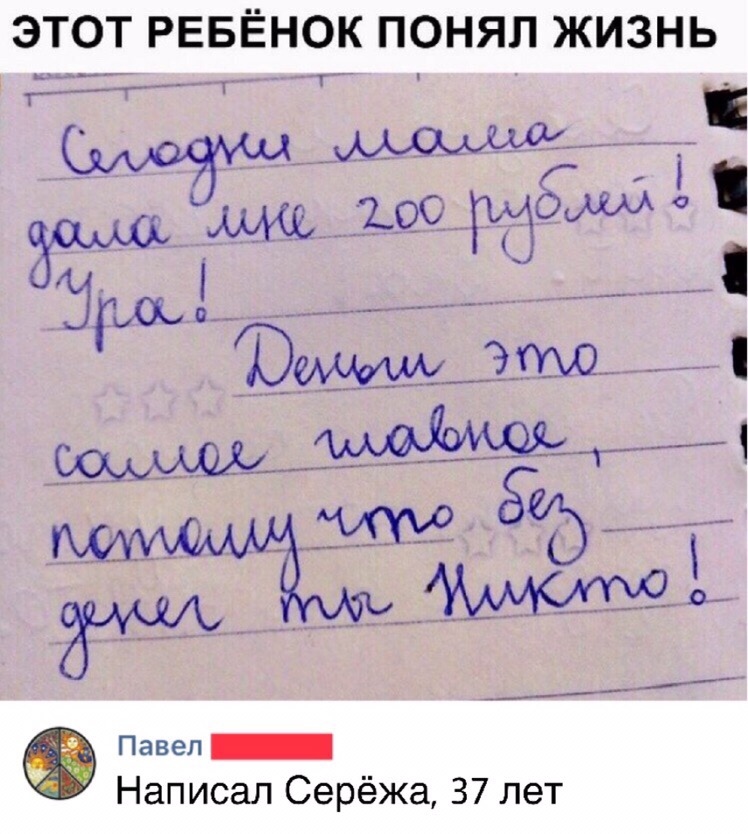 ЭТОТ РЕБЁНОК ПОНЯЛ ЖИЗНЬ
Сегодня мама
дала мне 200 рублей!
Ура!
Деньги это
самое главное,
потому что без
денег ты Никто!
Павел
Написал Серёжа, 37 лет